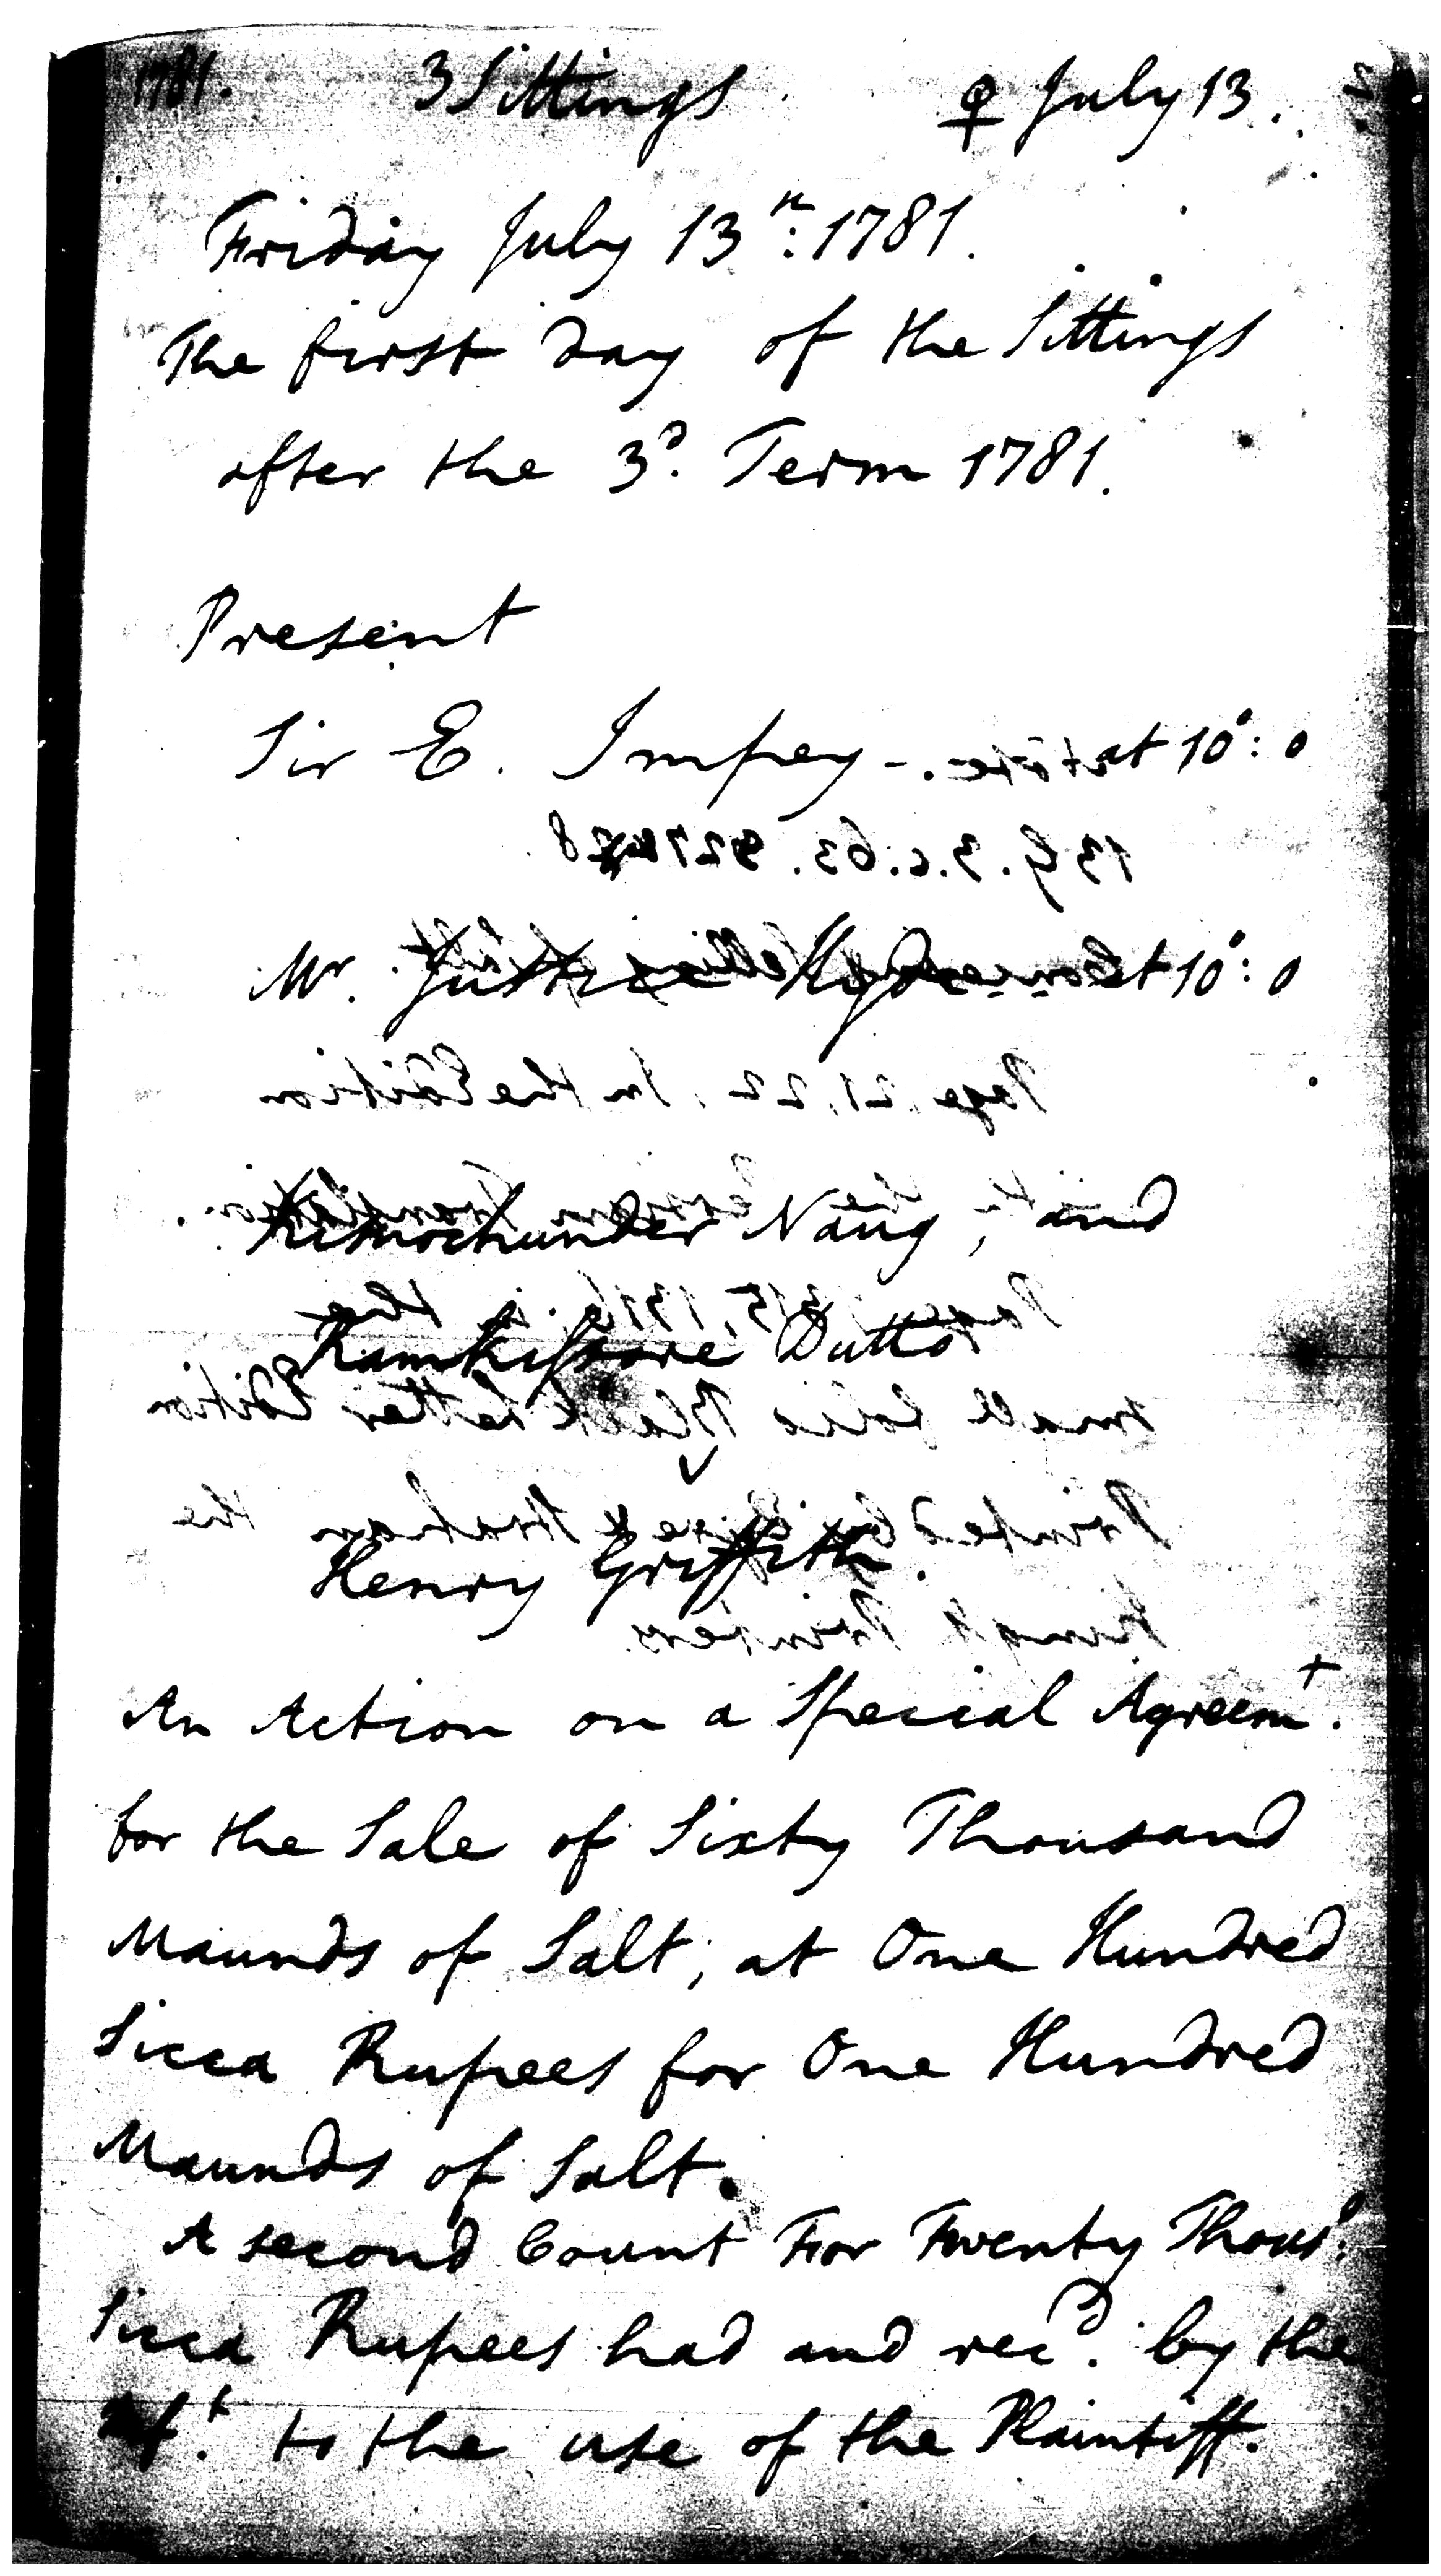 1781. 3 Sittings ♀ July 13.
Friday July 13th: 1781.
The first Day of the Sittings
after the 3d. Term 1781.
Present
Sir E. Impey - at 10°: 0
Mr. Justice Hyde at 10°: 0
Kisnochunder Naug, and
Ramkissore Dutto
v
Henry Griffith.
An Action on a Special Agreemt.
for the Sale of Sixty Thousand
Maunds of Salt; at One Hundred
Sicca Rupees for One Hundred
Maunds of Salt.
A second Count For Twenty Thousd:
Sicca Rupees had and recd. by the
Deft. to the use of the Plaintiff.